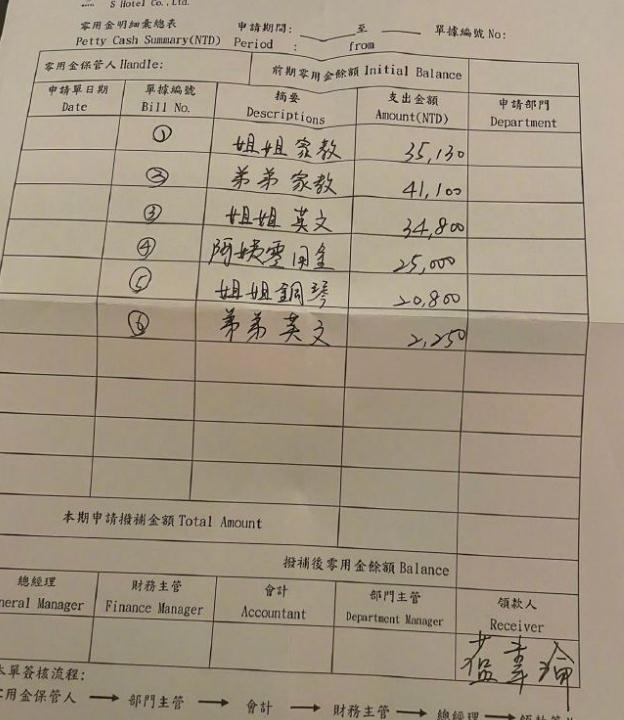 S Hotel Co., Ltd.
零用金明細彙總表 申請期間: 至 單據編號 No:
Petty Cash Summary(NTD) Period : from
零用金保管人 Handle: 前期零用金餘額 Initial Balance
申請單日期 單據編號 摘要 支出金額 申請部門
Date Bill No. Descriptions Amount(NTD) Department
① 姐姐家教 35,130
② 弟弟家教 41,100
③ 姐姐英文 34,800
④ 阿姨零用金 25,000
⑤ 姐姐鋼琴 20,800
⑥ 弟弟英文 2,250
本期申請撥補金額 Total Amount
撥補後零用金餘額 Balance
總經理 財務主管 會計 部門主管 領款人
neral Manager Finance Manager Accountant Department Manager Receiver
本單簽核流程:
零用金保管人 → 部門主管 → 會計 → 財務主管 → 總經理 → 領款簽